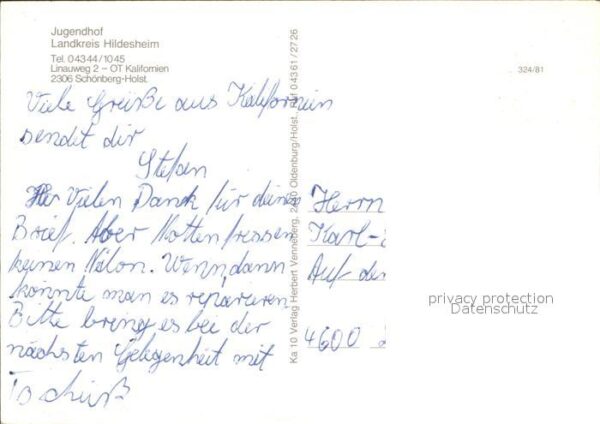 Jugendhof
Landkreis Hildesheim
Tel. 04344/1045
Linauweg 2 – OT Kalifornien
2306 Schönberg-Holst.
324/81
Viele Grüße aus Kalifornien
sendet dir
Stefan
Vielen Dank für deinen
Brief. Aber Motten fressen
keinen Nilon. Wenn, dann
könnte man es reparieren.
Bitte bring es bei der
nächsten Gelegenheit mit
Tschüß
Ka 10 Verlag Herbert Venneberg, 2440 Oldenburg/Holst. 04361/2726
Herrn
Karl-
Auf de
4600
privacy protection
Datenschutz